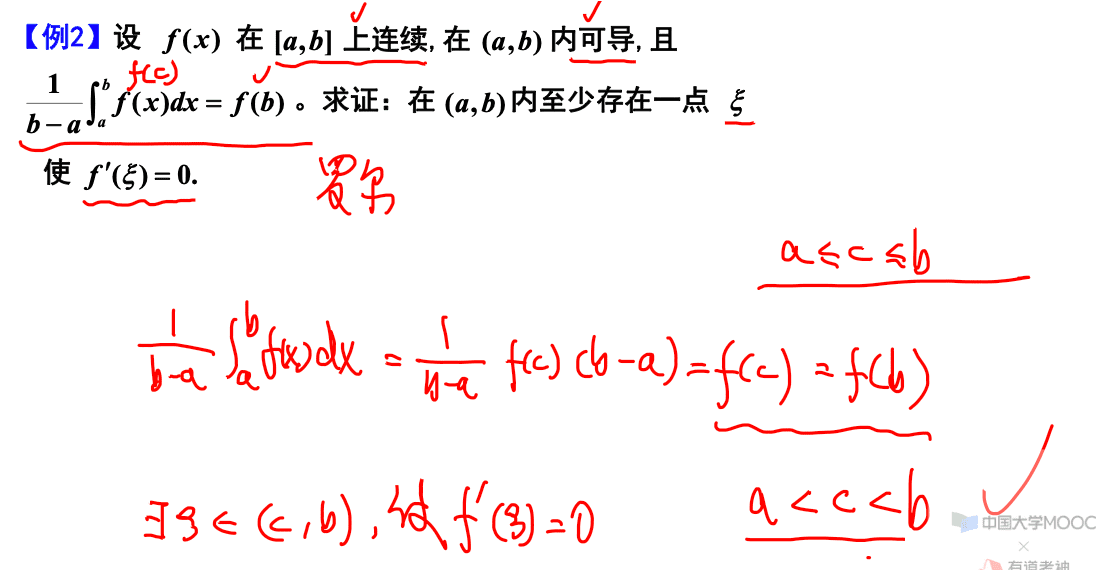 【例2】设 f(x) 在 [a,b] 上连续, 在 (a,b) 内可导, 且
f(c)
1/(b−a) ∫_a^b f(x)dx = f(b) 。求证：在 (a,b) 内至少存在一点 ξ
使 f′(ξ) = 0.
罗尔
a ≤ c ≤ b
1/(b−a) ∫_a^b f(x)dx = 1/(b−a) f(c) (b−a) = f(c) = f(b)
a < c < b
∃ξ ∈ (c, b), 使 f′(ξ) = 0
中国大学MOOC
×
有道考神